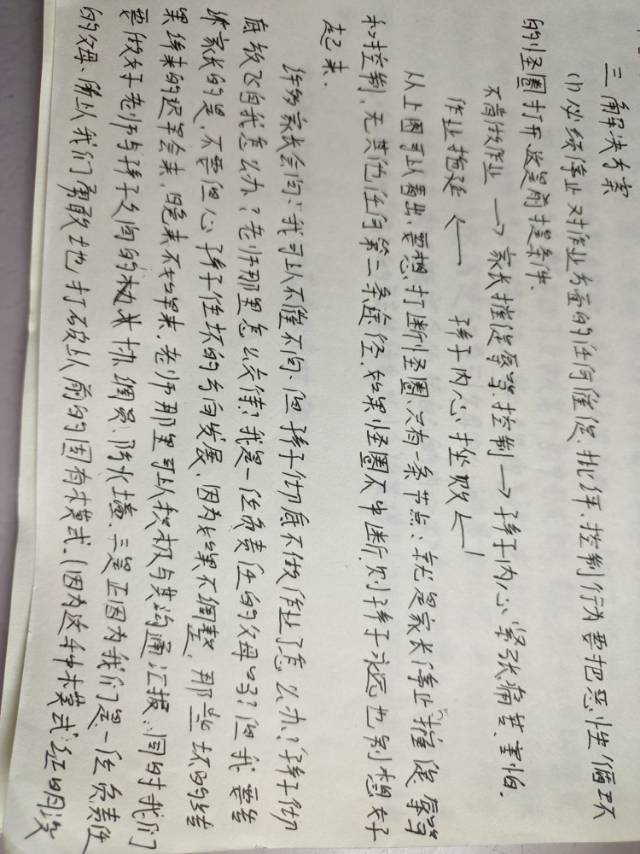 三 解决方案
(1) 必须停止对作业方面的任何催促、批评、控制行为要把恶性循环
的怪圈打开这是前提条件.
不肯做作业 → 家长催促辱骂.控制 → 孩子内心紧张痛苦.害怕.
作业拖延 ← 孩子内心挫败 ←
从上图可以看出.要想打断怪圈.只有一条节点:就是家长停止催促辱骂
和控制.无其他任何第二条途径.如果怪圈不中断.则孩子永远也别想好
起来.
许多家长会问:我可以不催不问、但孩子彻底不做作业了怎么办?孩子彻
底放飞自我怎么办?老师那里怎么交待?我是一位负责任的父母吗?但我要告
诉家长的是.不要担心孩子往坏的方向发展.因为如果不调整.那些坏的结
果终来的迟早会来.晚来不如早来.老师那里可以积极与其沟通汇报.同时我们
要做好老师与孩子之间的协调员.防火墙.三是正因为我们是一位负责任
的父母.所以我们勇敢地打破以前的固有模式.(因为这种模式证明没